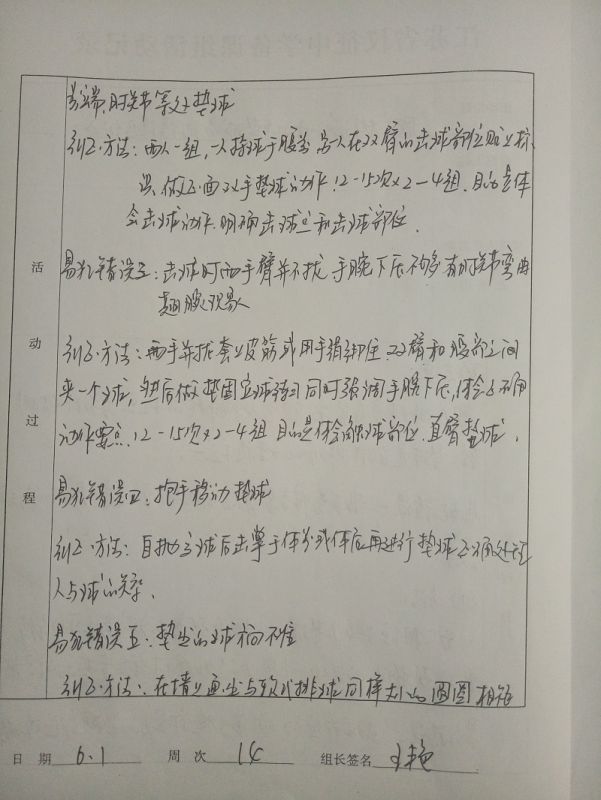 掌跟、肘关节等处垫球
纠正方法：两人一组，一人持球于腹前，另一人在双臂的击球部位贴上标
识，做正面双手垫球动作，12-15次×2-4组。目的是体
会击球动作，明确击球点和击球部位。
易犯错误三：击球时两手臂并不拢，手腕下压不够，有肘关节弯曲
翘腕现象
纠正方法：两手并拢套上皮筋或用手绢绑住，双臂和腹部之间
夹一个球，然后做垫固定球练习同时强调手腕下压，体会
动作要点，12-15次×2-4组 目的是体会触球部位，直臂垫球。
易犯错误四：抱手移动垫球
纠正方法：自抛球后击掌于体前或体后再进行垫球，正确处理
人与球的关系。
易犯错误五：垫出的球方向不准
纠正方法：在墙上画出与软式排球同样大小的圆圈，相距
活动过程
日期 6.1 周次 14 组长签名